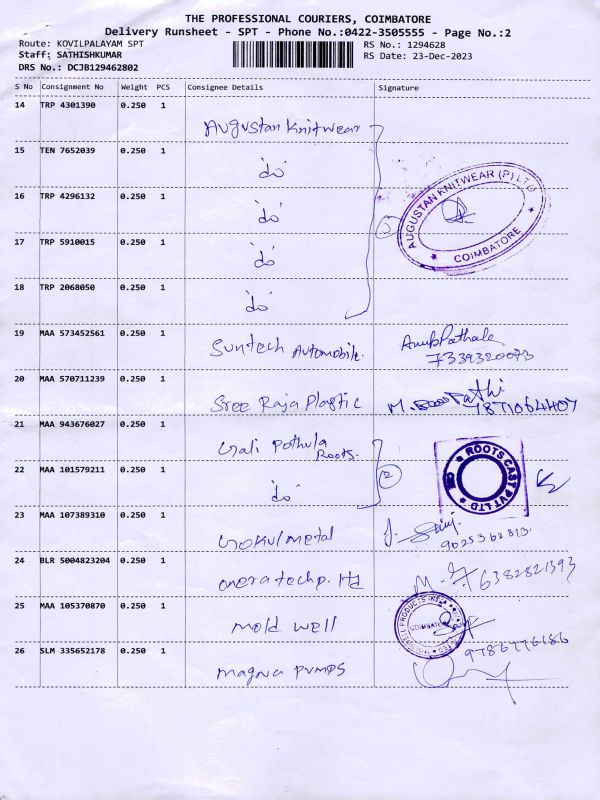 THE PROFESSIONAL COURIERS, COIMBATORE
Delivery Runsheet - SPT - Phone No.:0422-3505555 - Page No.:2
Route: KOVILPALAYAM SPT RS No.: 1294628
Staff: SATHISHKUMAR RS Date: 23-Dec-2023
DRS No.: DCJB129462802
S No Consignment No Weight PCS Consignee Details Signature
14 TRP 4301390 0.250 1 Augustan Knitwear
15 TEN 7652039 0.250 1 do
16 TRP 4296132 0.250 1 do
AUGUSTAN KNITWEAR (P) LTD COIMBATORE
17 TRP 5910015 0.250 1 do
18 TRP 2068050 0.250 1 do
19 MAA 573452561 0.250 1 Suntech Automobile.
7339320073
20 MAA 570711239 0.250 1 Sree Raja Plastic M.
21 MAA 943676027 0.250 1 Pothula Roots.
22 MAA 101579211 0.250 1 do 2
ROOTS CAST PVT LTD
23 MAA 107389310 0.250 1 Gokul metal
24 BLR 5004823204 0.250 1 tech p. ltd 6382821393
25 MAA 105370870 0.250 1 mold well
COIMBATORE
26 SLM 335652178 0.250 1 magna pumps 9786776186